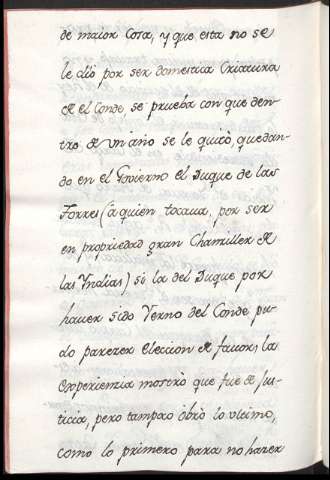 de maior Cosa, y que esta no se
le dio por ser domestica Criatura
de el Conde se prueba con que den-
tro de un año se le quitò, quedan-
do en el Govierno el Duque de las
Torres (â quien tocaua, por ser
en propriedad gran Chanciller de
las Yndias) si la del Duque por
hauer sido Yerno del Conde pu-
do parezer eleccion de fauor, la
experienzia mostrò que fue de Jus-
ticia, pero tampoco obrò lo vltimo,
como lo primero para no hazer